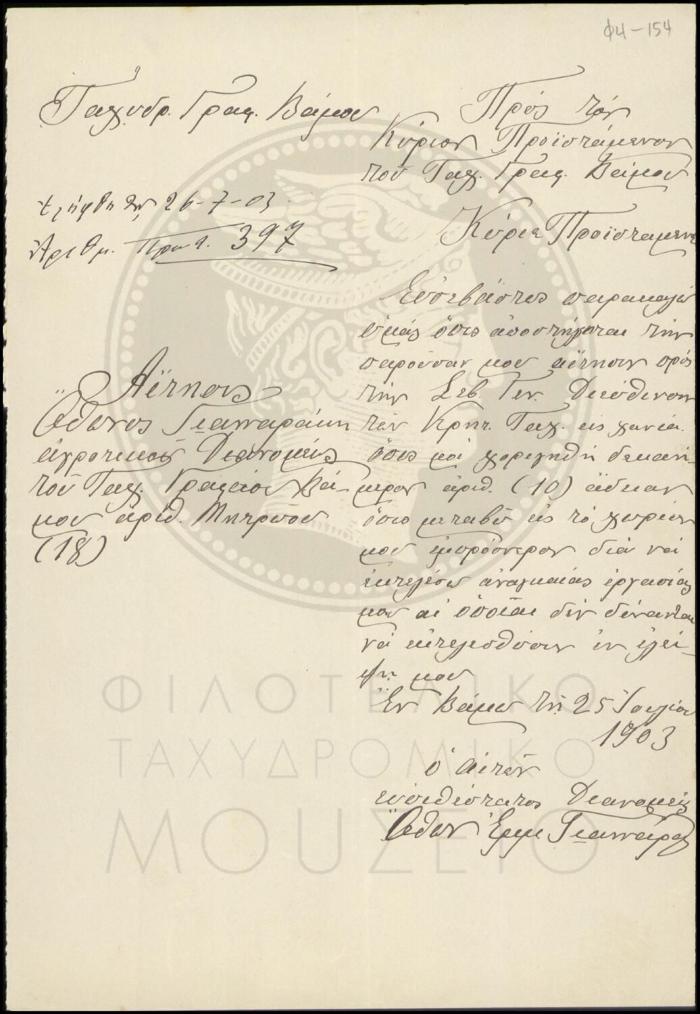 Φ4-154
Ταχυδρ. Γραφ. Βάμου
Ἐλήφθη τῇ 26-7-03
Ἀριθμ. Πρωτ. 397
Αἴτησις
Ὄθωνος Γιανναράκη
ἀγροτικοῦ Διανομέως
τοῦ Ταχ. Γραφείου Βά-
μου ἀριθ. Μητρώου
(18)
Πρὸς τὸν
Κύριον Προϊστάμενον
τοῦ Ταχ. Γραφ. Βάμου
Κύριε Προϊστάμενε
Εὐσεβάστως παρακαλῶ
ὑμᾶς ὅπως ἀποστήληται τὴν
παροῦσαν μου αἴτησιν πρὸς
τὴν Σεβ. Γεν. Διεύθυνσιν
τῶν Κρητ. Ταχ. εἰς Χανία
ὅπως μοὶ χορηγηθῇ δεκαή
μερον ἀριθ. (10) ἄδειαν
ὅπως μεταβῶ εἰς τὸ χωρίον
μου διὰ νὰ
ἐκτελέσω ἀναγκαίας ἐργασίας
μου αἱ ὁποῖαι δὲν δύνανται
νὰ ἐκτελεσθῶσιν ἐν ἐλεί-
ψει μου
Ἐν Βάμῳ τῇ 25 Ἰουλίου
1903
ὁ αἰτῶν
εὐπειθέστατος Διανομεύς
Ὄθων Ἐμμ Γιανναράκ
ΦΙΛΟΤΕΛΙΚΟ
ΤΑΧΥΔΡΟΜΙΚΟ
ΜΟΥΣΕΙΟ